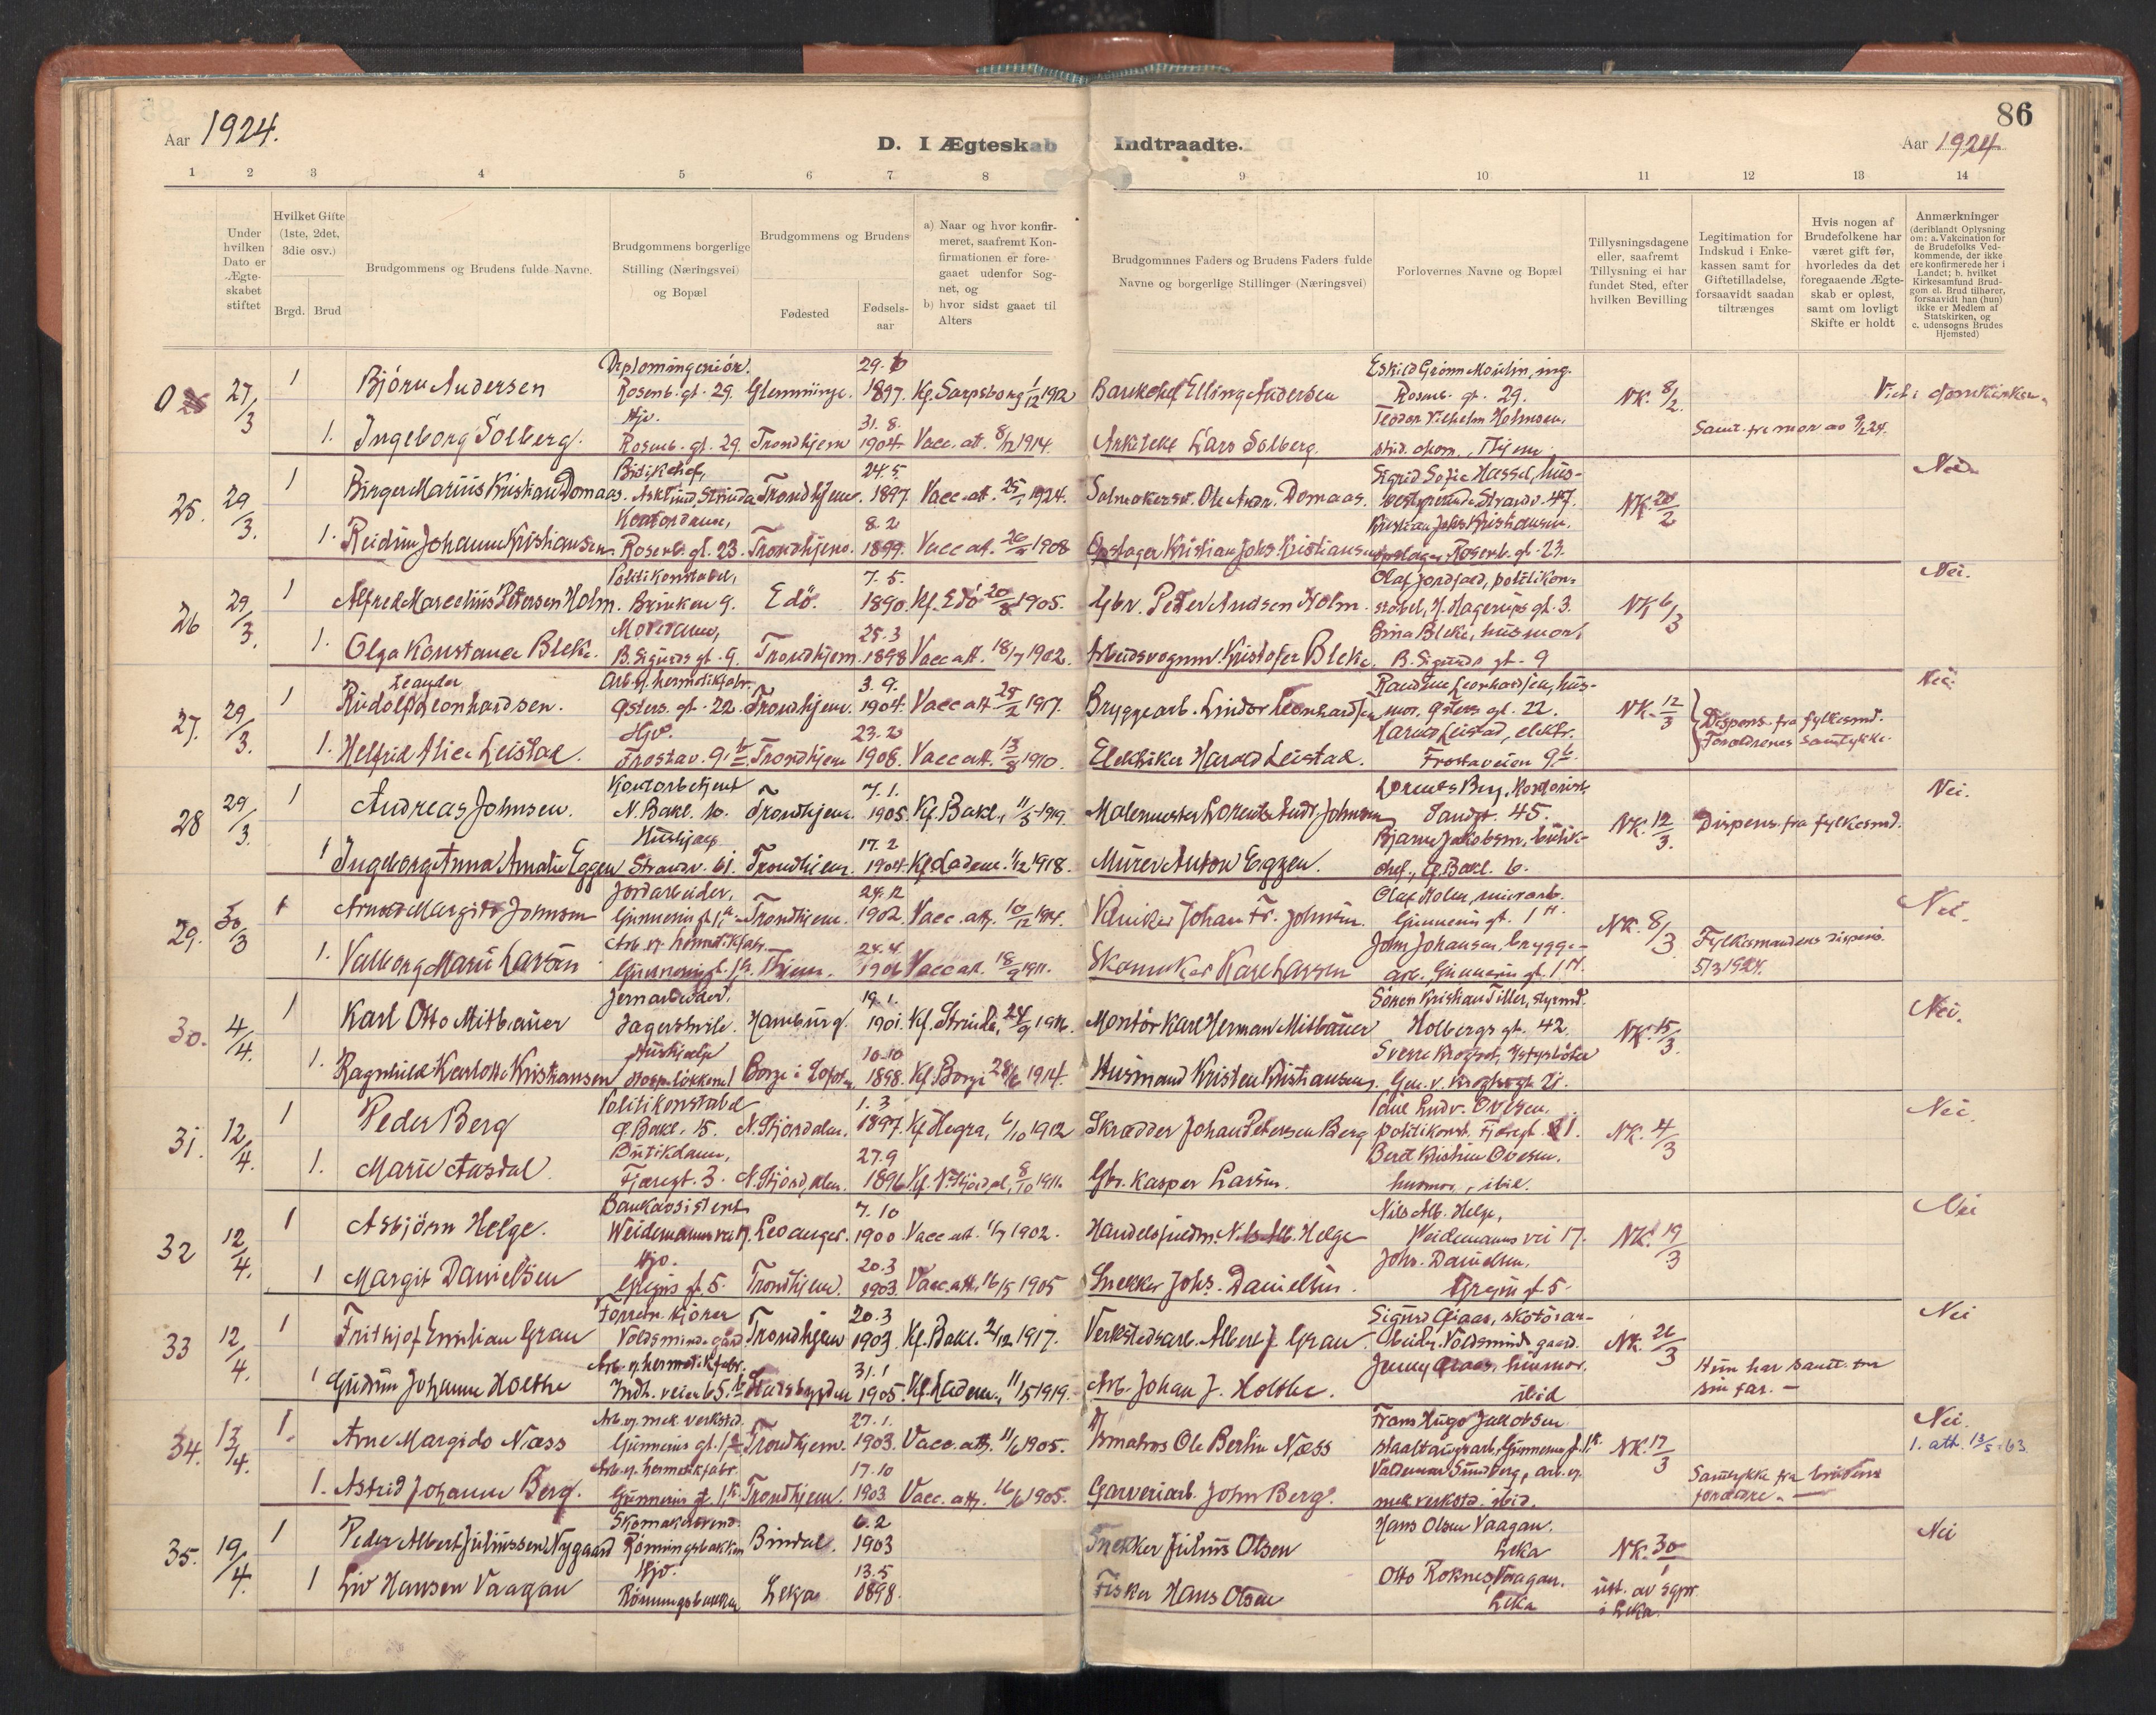 86
Aar 1924.
D. I Ægteskab Indtraadte.
Aar 1924
1 2 3 4 5 6 7 8 9 10 11 12 13 14
Under hvilken Dato er Ægteskabet stiftet
Hvilket Gifte (1ste, 2det, 3die osv.)
Brgd. Brud
Brudgommens og Brudens fulde Navne.
Brudgommens borgerlige Stilling (Næringsvei) og Bopæl
Brudgommens og Brudens
Fødested
Fødselsaar
a) Naar og hvor konfirmeret, saafremt Konfirmationen er foregaaet udenfor Sognet, og
b) hvor sidst gaaet til Alters
Brudgommes Faders og Brudens Faders fulde Navne og borgerlige Stillinger (Næringsvei)
Forlovernes Navne og Bopæl
Tillysningsdagene eller, saafremt Tillysning ei har fundet Sted, efter hvilken Bevilling
Legitimation for Indskud i Enkekassen samt for Giftetilladelse, forsaavidt saadan tiltrænges
Hvis nogen af Brudefolkene har været gift før, hvorledes da det foregaaende Ægteskab er opløst, samt om lovligt Skifte er holdt
Anmærkninger (deriblandt Oplysning om: a. Vakcination for de Brudefolks Vedkommende, der ikke ere konfirmerede her i Landet; b. hvilket Kirkesamfund Brudgom el. Brud tilhører, forsaavidt han (hun) ikke er Medlem af Statskirken, og c. udensogns Brudes Hjemsted)
Diplomingeniör. 29. Eskild Grönn Moulin, ing.
0 27/3 1 Björn Andersen Rosenb. gt. 29. Glemminge. 1897. Kf. Sarpsborg 1/12 1912 Elling Andersen Rosenb. gt. 29. NK. 8/2. Viet i domkirken.
Hjv. 31. 8. Teodor Vilhelm Holmsen,
1. Ingeborg Solberg. Rosenb. gt. 29. Trondhjem 1904. Vacc. att. 8/12 1914. Arkitekt Lars Solberg. stud. Thjem Samt. fra mor 9/2 24.
24.5. Sigrid Sofie Hassel, hus-
25. 29/3. 1 Birger Marius Kristian Domaas. Strinda Trondhjem. 1897. Vacc. att. 25/1 1924. Ole Andr. Domaas. Strandv. 47. NK. 20/2 Nei.
Kontordame, 8.2 Kristian Johs Kristiansen,
1. Reidun Johanne Kristiansen. Rosenb. gt. 23. Trondhjem. 1899. Vacc. att. 1908 Opslager Kristian Johs. Kristiansen opslager Rosenb. gt. 23.
Politikonstabel, 7. 5. Olaf politikon-
26 29/3. 1 Alfred Marelius Petersen Holm. Brinken 9. Edö. 1890. Kf. Edö 20/8 1905. Gbr. Peter Andsen Holm. stabel, H. Hagerups gt. 3. NK 6/3 Nei.
25.3 Bina Bleke, husmor,
1. Olga Konstance Bleke. B. Sigurds gt. 9. Trondhjem. 1898 Vacc att. 18/7 1902. Arbeidsvognm. Kristofer Bleke. B. Sigurds gt. 9
Leander Arb. v. hermetikfabr. 3. 9. Leonhardsen, hus-
27. 29/3. 1 Rudolf Leonhardsen. Østers. gt. 22. Trondhjem. 1904. Vacc att 28/2 1917. Bryggearb. Lindor Leonhardsen mor, Østers gt. 22. NK. 12/3 Dispens. fra fylkesmd. Nei.
Hjv. 23. 2 Harald Leistad, elektr. Forældrenes samtykke.
1. Helfrid Alice Leistad. Frostav. 9 b. Trondhjem 1908. Vacc att. 13/8 1910. Elektriker Harald Leistad. Frostaveien 9 b.
Kontorbetjent 7. 1. Lorents Berg, kontorist
28 29/3. 1 Andreas Johnsen. N. Bakl. 10. Trondhjem. 1905. Kf. Bakl., 11/5 1919. Malermester Lorents Andr. Johnsen Sandgt. 45. NK. 12/3. Dispens. fra fylkesmd. Nei.
Hushjælp 17. 2 Bjarne Jakobsen, butik-
1 Ingeborg Anna Amalie Eggen Strandv. 61. Trondhjem. 1904. Kf. Lademoen. 1/12 1918. Murer Anton Eggen. chef, Ø. Bakl. 6.
Jordarbeider, 24. 12 Olaf Holen, murarb.
29. 30/3 1 Arnold Margido Johnsen Gunnerus gt. 1 a. Trondhjem. 1902. Vacc. att. 10/12 1904. Johan Fr. Johnsen. Gunnerus gt. 1 a. NK. 8/3 Nei.
Arb. v. hermetikfabr. 24. 4 John Johansen, brygge- Fylkesmandens dispens.
1. Valborg Marie Larsen Gunnerus gt. 1 a. Thjem. 1906 Vacc att. 18/9 1911. Skomaker Karl Larsen arb. Gunnerus gt. 1 a. 5/3 1924.
Jernarbeider, 19. 1. Sören Kristian Tiller, styrmd.
30. 4/4. 1 Karl Otto Mitbauer Jagershvile. Hamburg. 1901. Kf. Strinda, 24/9 1916. Montör Karl Herman Mitbauer Holbergs gt. 42. NK. 15/3. Nei.
Hushjælp 10.10 Sverre
1. Ragnhild Karlotte Kristiansen Hosp. lökken 1 Borge i Lofoten 1898. Kf. Borge 28/6 1914. Husmand Kristen Kristiansen. Gen. v. Kroghsgt. 21.
Politikonstabel 1. 3
31. 12/4. 1 Peder Berg Ø. Bakl. 15. N. Stjördalen. 1897. Kf. Hegra, 6/10 1912 Skrædder Johan Petersen Berg politikonst. Fjæregt. 1. NK. 4/3 Nei.
Butikdame, 27.9 Berit Kristine Ovesen.
1. Marie Aasdal. Fjæregt. 3. N. Stjördalen. 1896 Kf. N. Stjørdal, 8/10 1911. Gbr. Kasper Larsen. husmor, ibid.
Bankassistent 7. 10 Nils Alb. Helge,
32 12/4. 1 Asbjörn Helge. Weidemanns vei 17. Levanger. 1900. Vacc. att. 1/7 1902. Nils Alb. Helge Weidemanns vei 17. NK. 19/3 Nei
Hjv. 20.3 Johs. Danielsen.
1 Margit Danielsen Gregus gt. 5. Trondhjem. 1903. Vacc. att. 16/5 1905 Snekker Johs. Danielsen. Gregus gt 5.
Forretn. kjörer 20.3 Sigurd Graas, skotöiar-
33 12/4. 1 Frithjof Emilian Grau Voldsminde gård Trondhjem 1903 Kf. Bakl. 2/12 1917. Verkstedsarb. Albert J. Grau beider, Voldsminde gaard. NK. 26/3 Nei
Arb. v. hermetikfabr. 31.1 Jenny Graas, husmor. Hun har samt. fra
1 Gudrun Johanne Holthe Indh. veien 65. b Stadsbygden 1905. Kf. Ladem., 11/5 1919. Arb. Johan J. Holthe. ibid sin far. —
Arb. v. mek. verksted. 27. 1. Frans Hugo Jakobsen
34. 13/4. 1. Arne Margido Næss Gunnerus gt. 1 a Trondhjem. 1903. Vacc. att. 11/6 1905. Ole Berlin Næss Gunnerus gt. 1 a. NK. 17/3 Nei.
1. att. 13/5 63.
Arb. v. hermetikfabr. 17.10 Valdemar Sundberg, arb. v. Samtykke fra brudens
1. Astrid Johanne Berg. Gunnerus gt. 1 a. Trondhjem. 1903 Vacc. att. 16/6 1905. Garveriarb. John Berg. mek. verksted. ibid. forældre. —
Skomakersvend. 6. 2 Hans Olsen Vaagan.
35. 19/4. 1 Peder Albert Juliussen Nygaard Rönningsbakken Bindal. 1903 Snekker Julius Olsen Leka NK. 30/1 Nei
Hjv. 13.5 Otto Roknes, Vaagan.
1 Liv Hansen Vaagan Rönningsbakken Leka 1898. Fisker Hans Olsen Leka utst. av sgpr. i Leka.